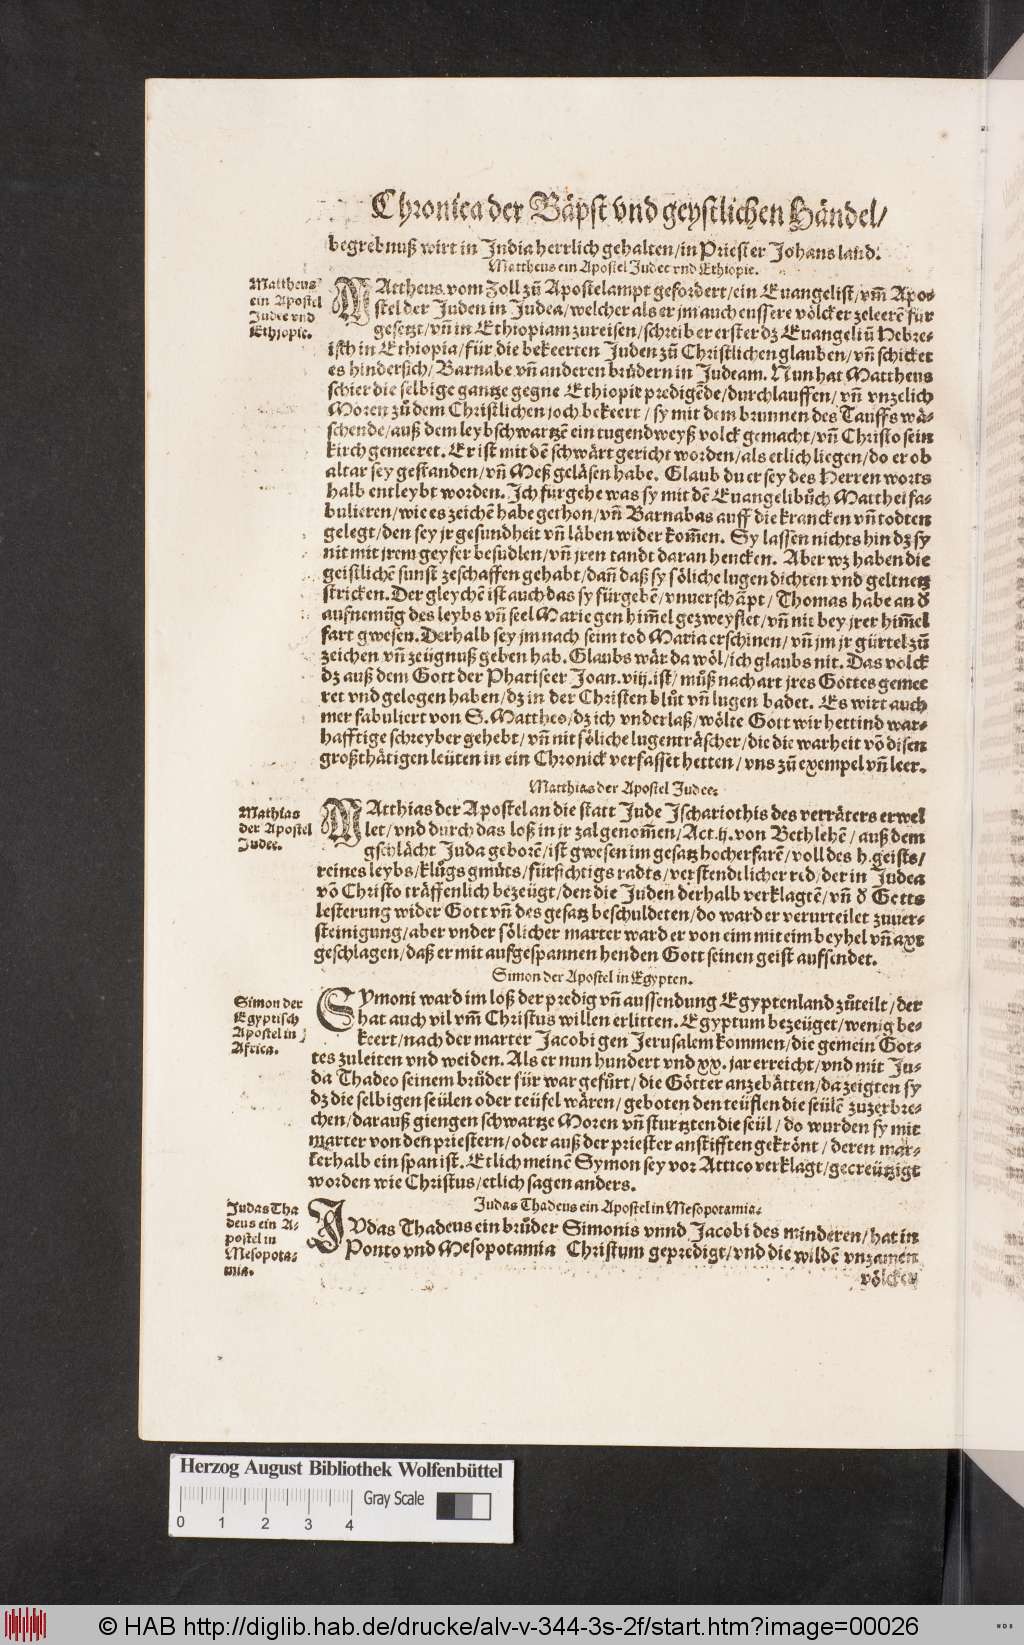 Chronica der Bäpst vnd geystlichen Händel/
begrebnuß wirt in India herrlich gehalten/in Priester Johans land.
Mattheus ein Apostel Judee vnd Ethiopie.
Mattheus
ein Apostel
Judee vnd
Ethiopie.
MAttheus vom Zoll zů Apostelampt gefordert/ein Euangelist/vm̃ Apo-
stel der Juden in Judea/welcher als er jm auch eussere völcker zeleerẽ für
gesetzt/vñ in Ethiopiam zureisen/schreib er erster dz Euangeliũ Hebre-
isch in Ethiopia/für die bekeerten Juden zů Christlichen glauben/vñ schicket
es hindersich/Barnabe vñ anderen brůdern in Judeam. Nun hat Mattheus
schier die selbige gantze gegne Ethiopie predigẽde/durchlauffen/vñ vnzelich
Moren zů dem Christlichen joch bekeert/sy mit dem brunnen des Tauffs wä-
schende/auß dem leybschwartzẽ ein tugendweyß volck gemacht/vñ Christo sein
kirch gemeeret. Er ist mit dẽ schwärt gericht worden/als etlich liegen/do er ob
altar sey gestanden/vñ Meß geläsen habe. Glaub du er sey des Herren worts
halb entleybt worden. Ich fürgehe was sy mit dẽ Euangelibůch Matthei fa-
bulieren/wie es zeichẽ habe gethon/vñ Barnabas auff die krancken vñ todten
gelegt/den sey jr gesundheit vñ läben wider kom̃en. Sy lassen nichts hin dz sy
nit mit jrem geyfer besudlen/vñ jren tandt daran hencken. Aber wz haben die
geistlichẽ sunst zeschaffen gehabt/dañ daß sy söliche lugen dichten vnd geltnetz
stricken. Der gleychẽ ist auch das sy fürgebẽ/vnuerschãpt/Thomas habe an d̕
aufnemũg des leybs vñ seel Marie gen him̃el gezweyflet/vñ nit bey jrer him̃el
fart gwesen. Derhalb sey jm nach seim tod Maria erschinen/vñ jm jr gürtel zů
zeichen vñ zeügnuß geben hab. Glaubs wär da wöl/ich glaubs nit. Das volck
dz auß dem Gott der Phariseer Joan.viij.ist/můß nach art jres Gottes gemee
ret vnd gelogen haben/dz in der Christen blůt vñ lugen badet. Es wirt auch
mer fabuliert von S. Mattheo/dz ich vnderlaß/wölte Gott wir hettind war-
hafftige schreyber gehebt/vñ nit söliche lugenträscher/die die warheit võ disen
großthätigen leüten in ein Chronick verfasset hetten/vns zů exempel vñ leer.
Matthias der Apostel Judee.
Mathias
der Apostel
Judee.
MAtthias der Apostel an die statt Jude Ischariothis des verräters erwel
let/vnd durch das loß in jr zal genom̃en/Act.ij. von Bethlehẽ/auß dem
gschlächt Juda geborẽ/ist gwesen im gesatz hocherfarẽ/voll des h.geists/
reines leybs/klůgs gmůts/fürsichtigs radts/verstendtlicher red/der in Judea
võ Christo träffenlich bezeügt/den die Juden derhalb verklagtẽ/vñ d̕ Gotts
lesterung wider Gott vñ des gesatz beschuldeten/do ward er verurteilet zuuer-
steinigung/aber vnder sölicher marter ward er von eim mit eim beyhel vñ axt
geschlagen/daß er mit aufgespannen henden Gott seinen geist aufsendet.
Simon der Apostel in Egypten.
Simon der
Egyptisch
Apostel in
Africa.
SYmoni ward im loß der predig vñ aussendung Egyptenland zůteilt/der
hat auch vil vm̃ Christus willen erlitten. Egyptum bezeüget/wenig be-
keert/nach der marter Jacobi gen Jerusalem kommen/die gemein Got-
tes zuleiten vnd weiden. Als er nun hundert vnd xx. jar erreicht/vnd mit Ju-
da Thadeo seinem brůder für war gefürt/die Götter anzebätten/da zeigten sy
dz die selbigen seülen oder teüfel wären/geboten den teüflen die seülẽ zuzerbre-
chen/darauß giengen schwartze Moren vñ sturtzten die seül/do wurden sy mit
marter von den priestern/oder auß der priester anstifften gekrönt/deren mar-
kerhalb ein span ist. Etlich meinẽ Symon sey vor Attico verklagt/gecreützigt
worden wie Christus/etlich sagen anders.
Judas Thadeus ein Apostel in Mesopotamia.
Judas Tha
deus ein A-
postel in
Mesopota-
mia.
JVdas Thadeus ein brůder Simonis vnnd Jacobi des minderen/hat in
Ponto vnd Mesopotamia Christum gepredigt/vnd die wildẽ vnzamen
völcker
Herzog August Bibliothek Wolfenbüttel
Gray Scale
0 1 2 3 4
© HAB http://diglib.hab.de/drucke/alv-v-344-3s-2f/start.htm?image=00026